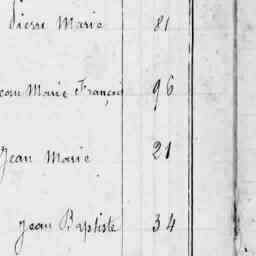 Pierre Marie 81
Jean Marie François 96
Jean Marie 21
Jean Baptiste 34